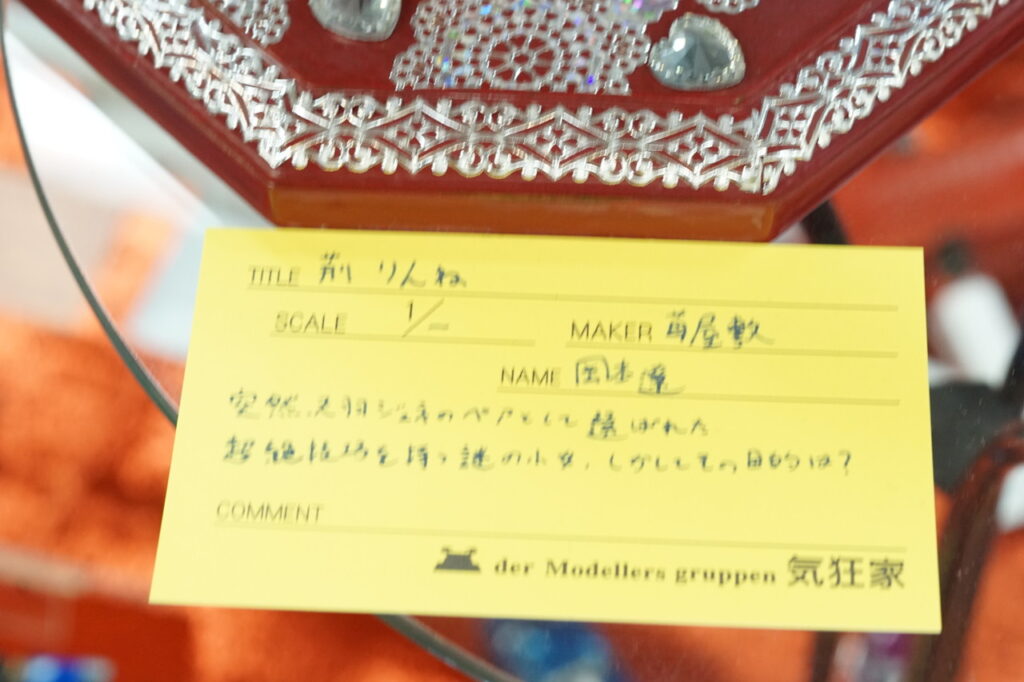 TITLE 荊 りんね
SCALE 1/
MAKER 苺屋敷
NAME 国本
突然、天羽ジュネのペアとして選ばれた
超絶技巧を持つ謎の少女。しかしてその目的は?
COMMENT
der Modellers gruppen 気狂家